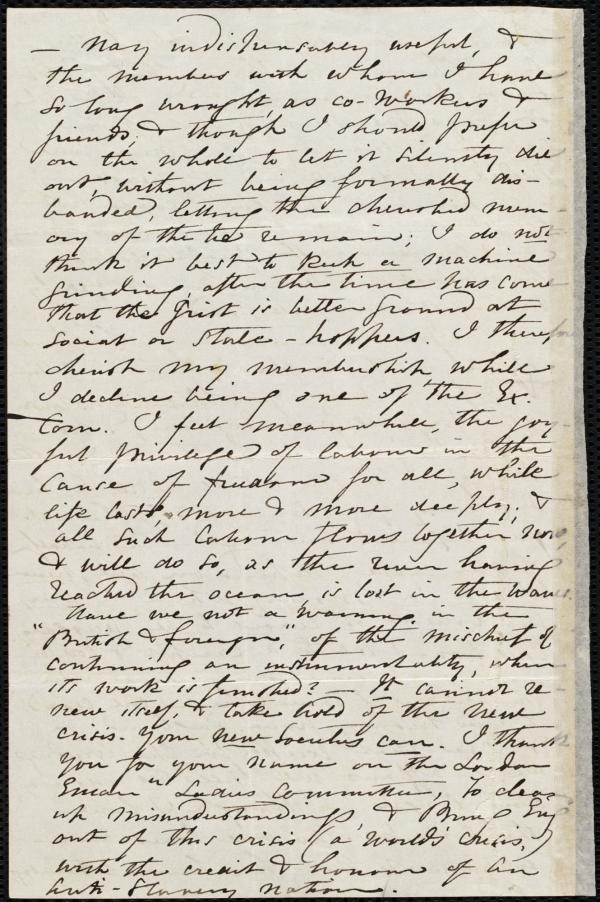 - nay indispensably useful, &
the members with whom I have
so long wrought, as co-workers &
friends; & though I should prefer
on the whole to let it silently die
out, without being formally dis-
banded, letting the cherished mem-
ory of the tie remain; I do not
think it best to keep a machine
grinding, after the time has come
that the grist is better ground at
social or State-hoppers. I therefore
cherish my membership while
I decline being one of the Ex.
Com. I feel meanwhile, the joy-
ful privilege of labour in the
cause of freedom for all, while
life lasts, more & more deeply; &
all such labour flows together now,
& will do so, as the river having
reached the ocean, is lost in the waves.
Have we not a warning in the
"British & foreign", of the mischief of
continuing an instrumentality, when
its work is finished? - It cannot re-
new itself, & take hold of the new
crisis. Your new Societies can. I thank
you for your name on the London
Eman" Ladies Committee, to clear
up misunderstandings, & bring Eng
out of this crisis (a world's crisis,)
with the credit & honour of an
Anti-Slavery nation.